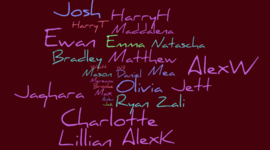 Josh HarryH
HarryT Maddalena
Ewan Emma Natascha
Bradley Matthew
Mason Daniel Mea AlexW
Jaghara Max Olivia Jett
Ryan Zali
Charlotte
Lillian AlexK